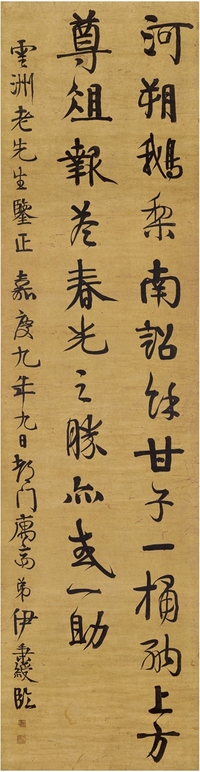 河朔鹅梨南詔餘甘子一桶納上方
尊俎報答春光之勝亦或一助
雲洲老先生鑒正 嘉慶九年九日都门寓齋弟伊秉綬臨